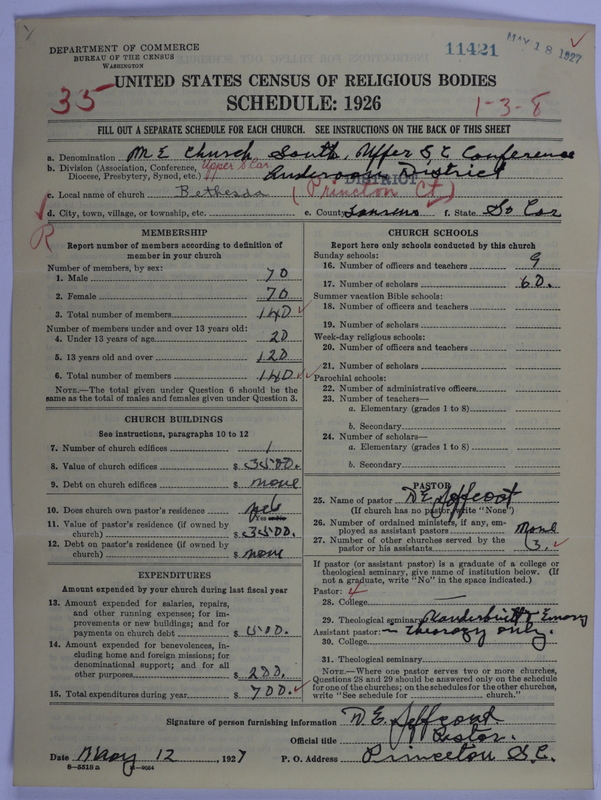 DEPARTMENT OF COMMERCE
BUREAU OF THE CENSUS
WASHINGTON
11421
MAY 18 1927
UNITED STATES CENSUS OF RELIGIOUS BODIES
SCHEDULE: 1926
35
1-3-8
FILL OUT A SEPARATE SCHEDULE FOR EACH CHURCH. SEE INSTRUCTIONS ON THE BACK OF THIS SHEET
a. Denomination M E Church South, Upper S C Conference
b. Division (Association, Conference, Diocese, Presbytery, Synod, etc.) Upper S Car. Anderson District
DISTRICT
c. Local name of church Bethesda (Princeton Ct)
d. City, town, village, or township, etc. e. County Laurens f. State So Car
R
MEMBERSHIP
Report number of members according to definition of member in your church
Number of members, by sex:
1. Male 70
2. Female 70
3. Total number of members 140
Number of members under and over 13 years old:
4. Under 13 years of age 20
5. 13 years old and over 120
6. Total number of members 140
NOTE.—The total given under Question 6 should be the same as the total of males and females given under Question 3.
CHURCH BUILDINGS
See instructions, paragraphs 10 to 12
7. Number of church edifices 1
8. Value of church edifices $ 3500.
9. Debt on church edifices $ none
10. Does church own pastor's residence yes
11. Value of pastor's residence (if owned by church) $ 3500.
12. Debt on pastor's residence (if owned by church) $ none
EXPENDITURES
Amount expended by your church during last fiscal year
13. Amount expended for salaries, repairs, and other running expenses; for improvements or new building; and for payments on church debt $ 500.
14. Amount expended for benevolences, including home and foreign missions; for denominational support; and for all other purposes $ 200.
15. Total expenditures during year $ 700.
CHURCH SCHOOLS
Report here only schools conducted by this church
Sunday schools:
16. Number of officers and teachers 9
17. Number of scholars 60.
Summer vacation Bible schools:
18. Number of officers and teachers
19. Number of scholars
Week-day religious schools:
20. Number of officers and teachers
21. Number of scholars
Parochial schools:
22. Number of administrative officers
23. Number of teachers—
a. Elementary (grades 1 to 8)
b. Secondary
24. Number of scholars—
a. Elementary (grades 1 to 8)
b. Secondary
PASTOR
25. Name of pastor D E Jeffcoat
(If church has no pastor, write "None")
26. Number of ordained ministers, if any, employed as assistant pastors None
27. Number of other churches served by the pastor or his assistants 3.
If pastor (or assistant pastor) is a graduate of a college or theological seminary, give name of institution below. (If not a graduate, write "No" in the space indicated.)
Pastor: 4
28. College —
29. Theological seminary Vanderbilt & Emory
Assistant pastor: — Theology only.
30. College
31. Theological seminary
NOTE.—Where one pastor serves two or more churches, Questions 28 and 29 should be answered only on the schedule for one of the churches; on the schedules for the other churches, write "See schedule for church."
Signature of person furnishing information D. E. Jeffcoat
Official title Pastor.
Date May 12, 1927 P. O. Address Princeton S.C.
8—5518 a